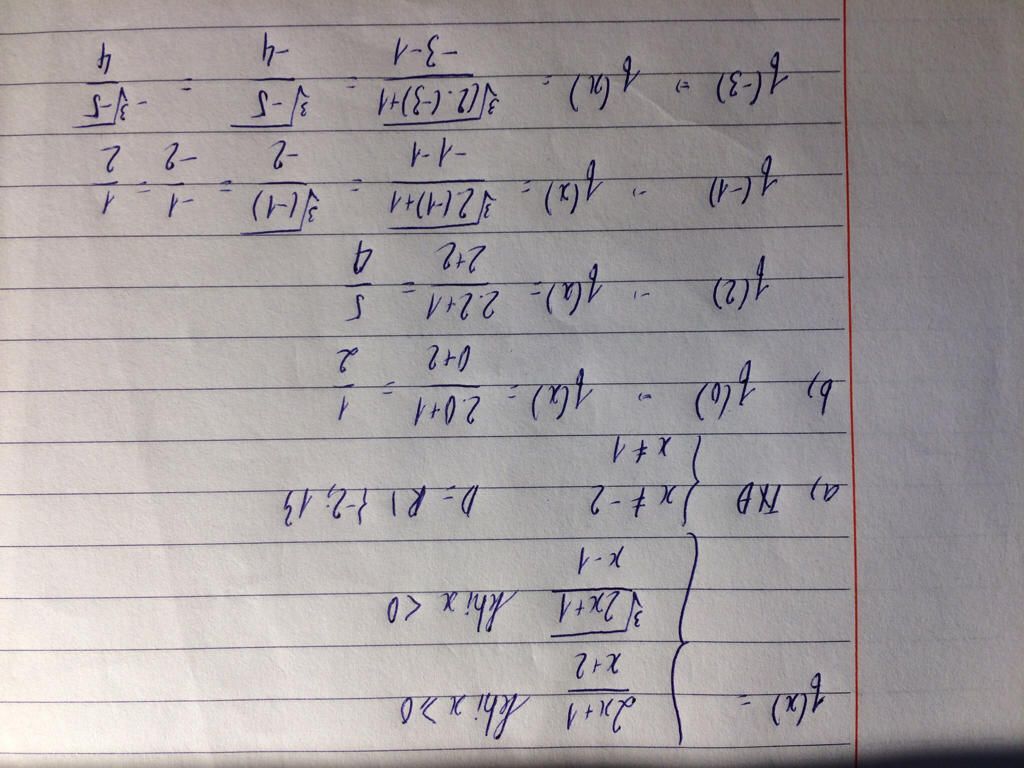 f(x) = { (2x+1)/(x+2) khi x > 0
∛(2x+1)/(x-1) khi x < 0
a, TXD { x ≠ -2 D = R \ {-2; 1}
x ≠ 1
b, f(0) => f(x) = (2.0+1)/(0+2) = 1/2
f(2) => f(x) = (2.2+1)/(2+2) = 5/4
f(-1) => f(x) = ∛(2(-1)+1)/(-1-1) = ∛(-1)/-2 = -1/-2 = 1/2
f(-3) => f(x) = ∛(2.(-3)+1)/(-3-1) = ∛-5/-4 = -∛-5/4